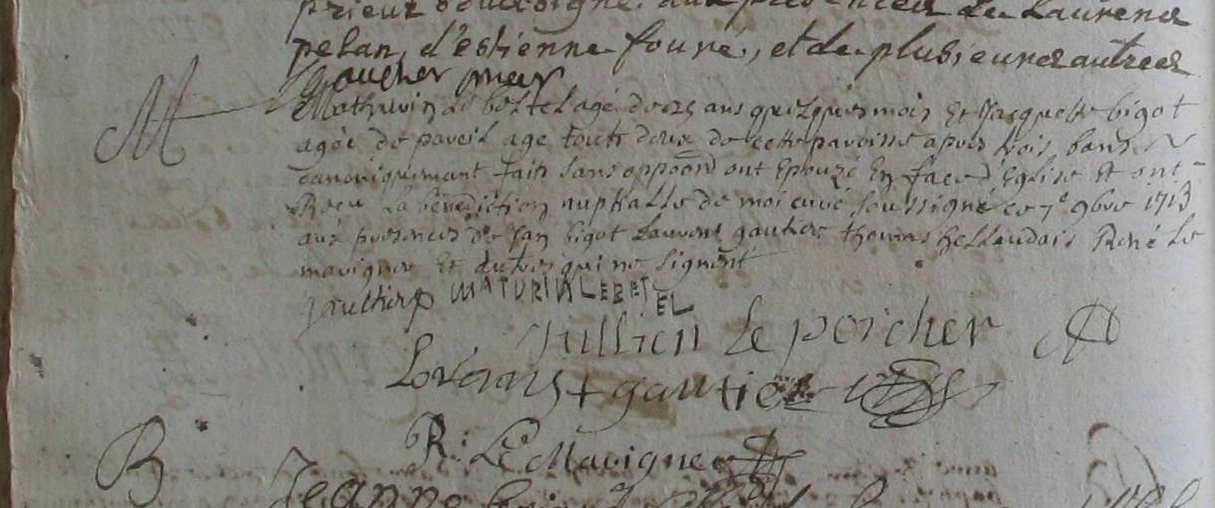 prieur soubsigné, aux presences de Laurend
pelan, d'estienne fouré, et de plusieurs autres
M gaucher prieur
Mathurin Le bettel agé de 25 ans quelques mois Et Jacquette bigot
agée de pareil age touts deux de cette paroisse apres trois bans
canoniquemant faits sans opposon ont Epouzé En face d'Eglise Et ont
Receu La bénédiction nuptialle de moi curé soussigné ce 7e 9bre 1713
aux presences de Jan bigot Laurent gautier thomas hellaudais René Le
mavigner Et autres qui ne signent
gaultier MATURIN LEBET
EL
Jullien Le porcher
Lorans + gautier
R: Le Mavigner
B Jeanne